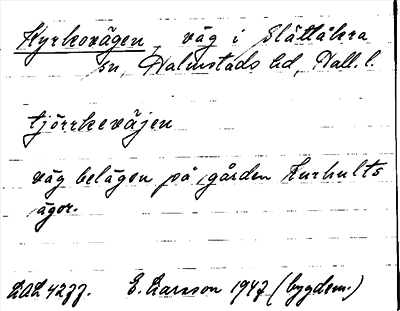 Kyrkovägen väg i Slättåkra
sn, Halmstads hd, Hall. l.
tjörrkeväjen
väg belägen på gården Kurhults
ägor.
LAL 4277. E. Larsson 1947 (bygdem.)